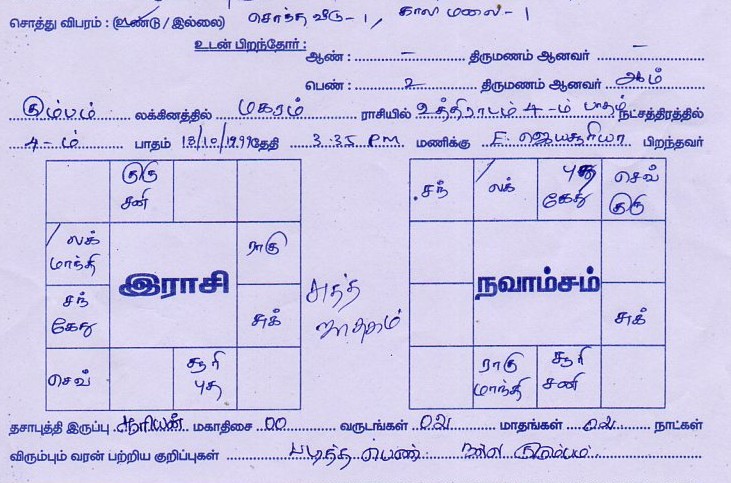 சொத்து விபரம் : (உண்டு / இல்லை) சொந்த வீடு - 1, காலி மனை - 1
உடன் பிறந்தோர் : ஆண் : – திருமணம் ஆனவர் –
பெண் : 2 திருமணம் ஆனவர் ஆம்
கும்பம் லக்கினத்தில் மகரம் ராசியில் உத்திராடம் 4-ம் பாதம் நட்சத்திரத்தில்
4-ம் பாதம் 18/10/1999 தேதி 3.35 P.M மணிக்கு E. ஜெயசூரியா பிறந்தவர்
குரு சனி
லக் மாந்தி
ராகு
சந் கேது
சுக்
செவ்
சூரி புத
இராசி
சுத்த ஜாதகம்
சந்
லக்
புத கேது
செவ் குரு
சுக்
ராகு மாந்தி
சூரி சனி
நவாம்சம்
தசாபுத்தி இருப்பு சூரியன் மகாதிசை 00 வருடங்கள் 02 மாதங்கள் 02 நாட்கள்
விரும்பும் வரன் பற்றிய குறிப்புகள் படித்த பெண் நல்ல குடும்பம்